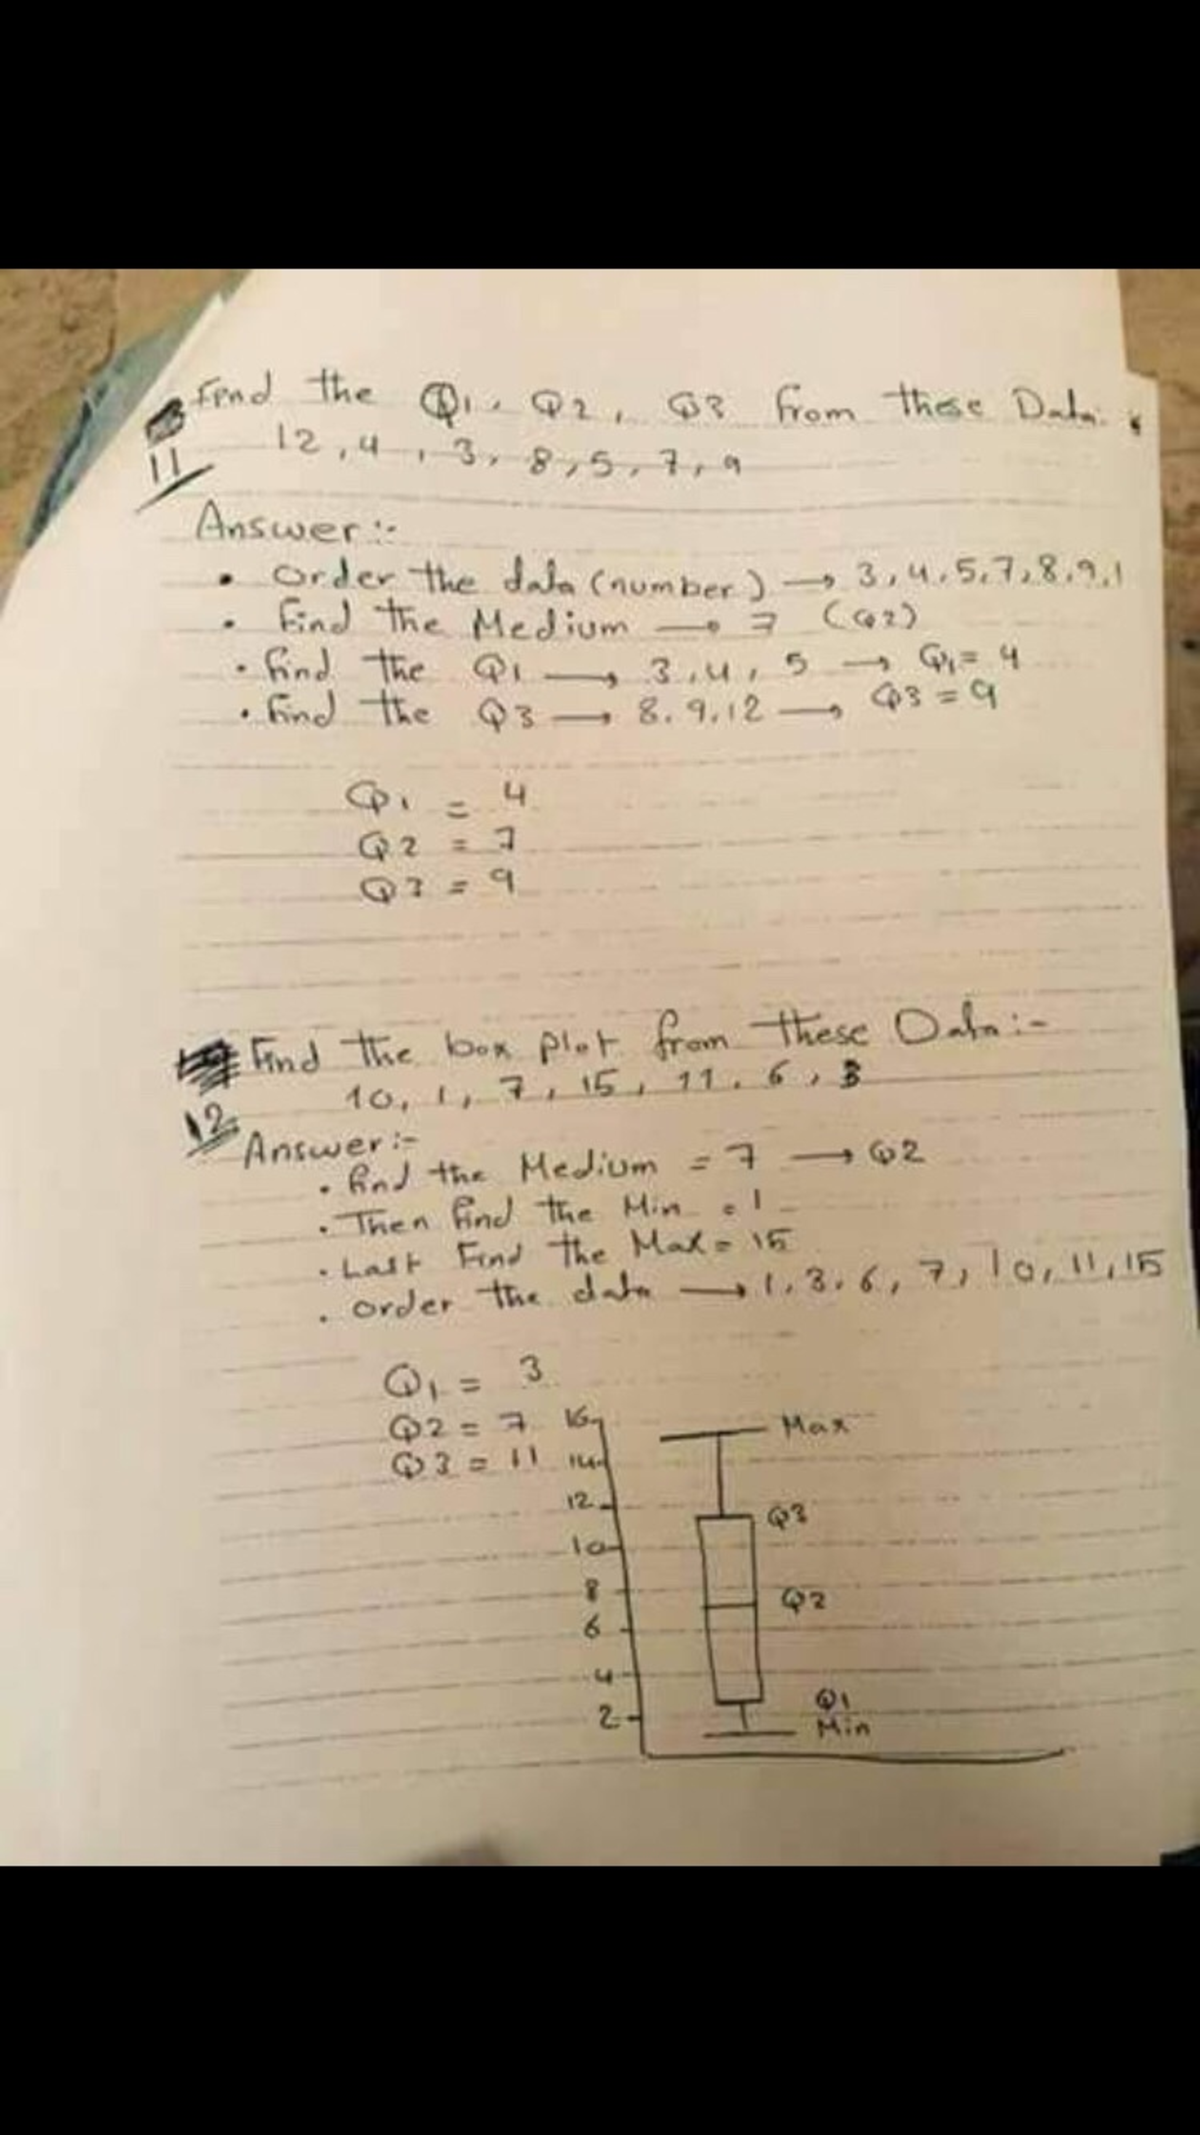 Find the Q1, Q2, Q3 from these Data:
12, 4, 3, 8, 5, 7, 9
11
Answer:-
• Order the data (number) → 3, 4, 5, 7, 8, 9, 1
• Find the Medium → 7 (Q2)
• find the Q1 → 3, 4, 5 → Q1 = 4
• find the Q3 → 8, 9, 12 → Q3 = 9
Q1 = 4
Q2 = 7
Q3 = 9
Find the box plot from these Data:-
10, 1, 7, 15, 11, 6, 3
12
Answer:-
• find the Medium = 7 → Q2
• Then find the Min = 1
• Last Find the Max = 15
• order the data → 1, 3, 6, 7, 10, 11, 15
Q1 = 3
Q2 = 7
Q3 = 11
16
14
12
10
8
6
4
2
Max
Q3
Q2
Q1
Min